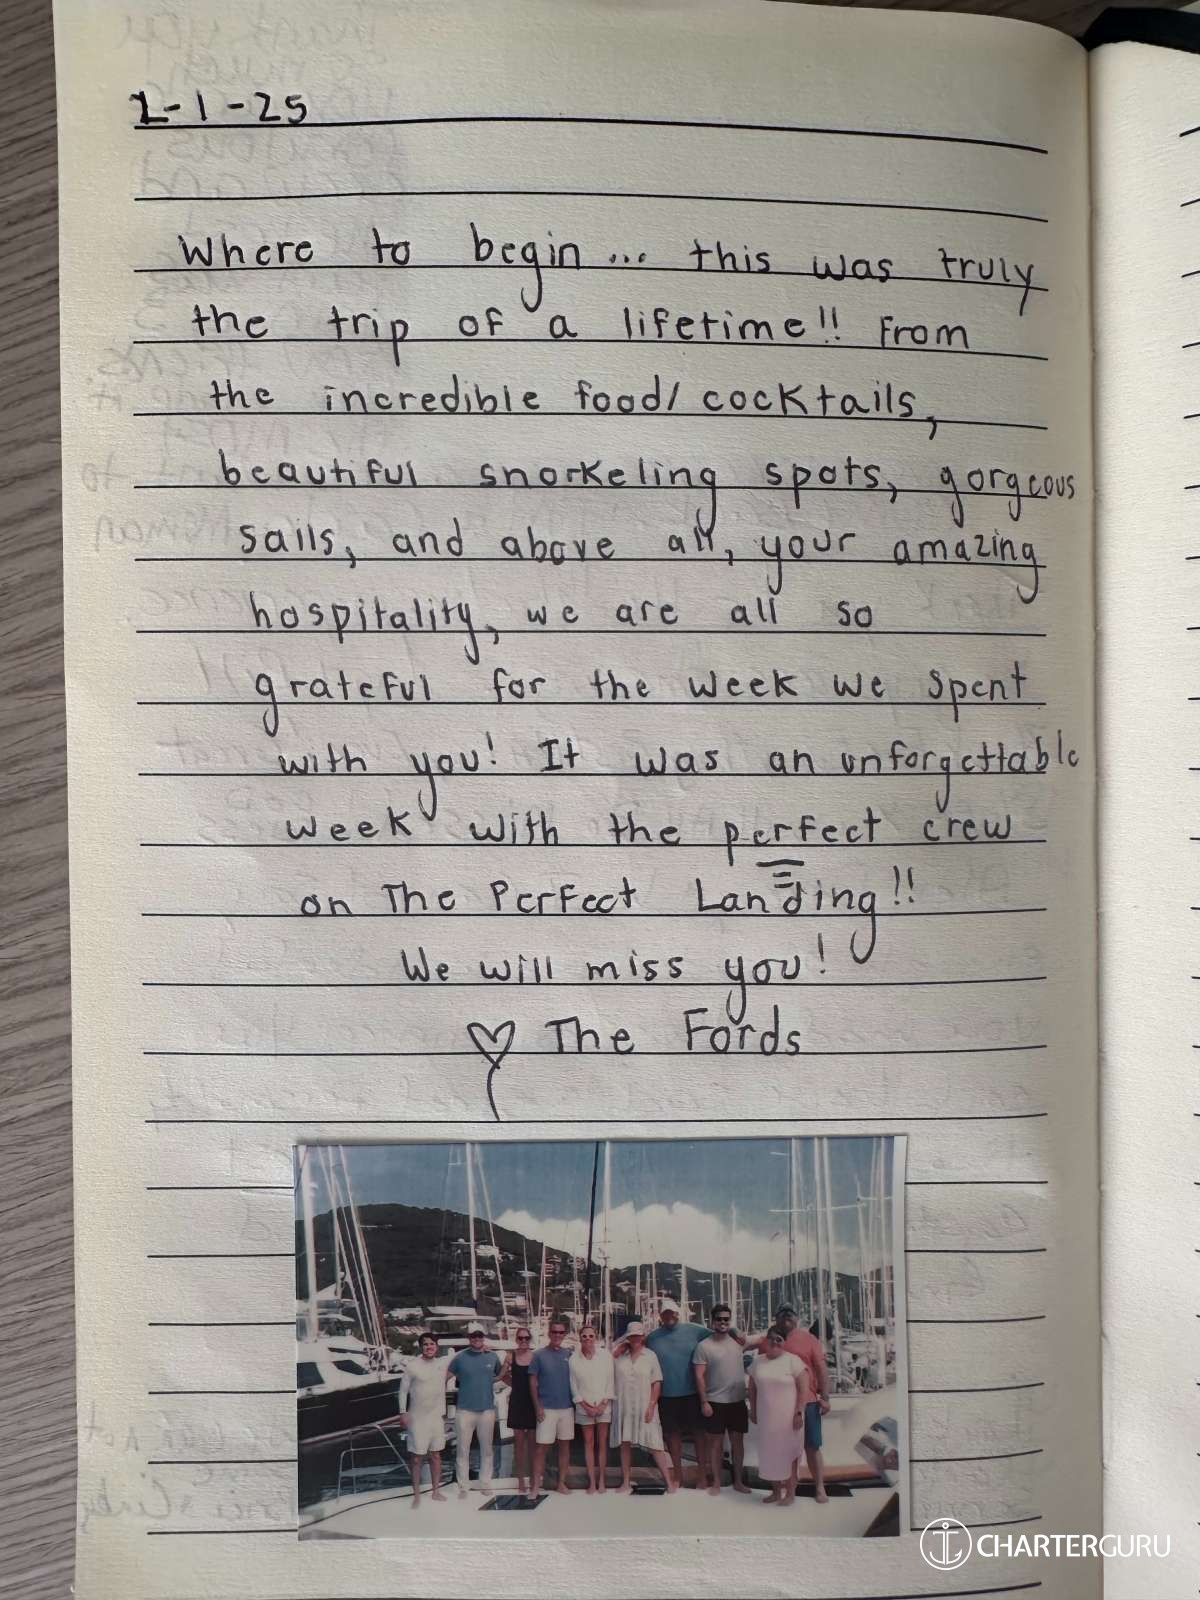 2-1-25
Where to begin... this was truly
the trip of a lifetime!! From
the incredible food/cocktails,
beautiful snorkeling spots, gorgeous
sails, and above all, your amazing
hospitality, we are all so
grateful for the week we spent
with you! It was an unforgettable
week with the perfect crew
on The Perfect Landing!!
We will miss you!
The Fords
CHARTERGURU